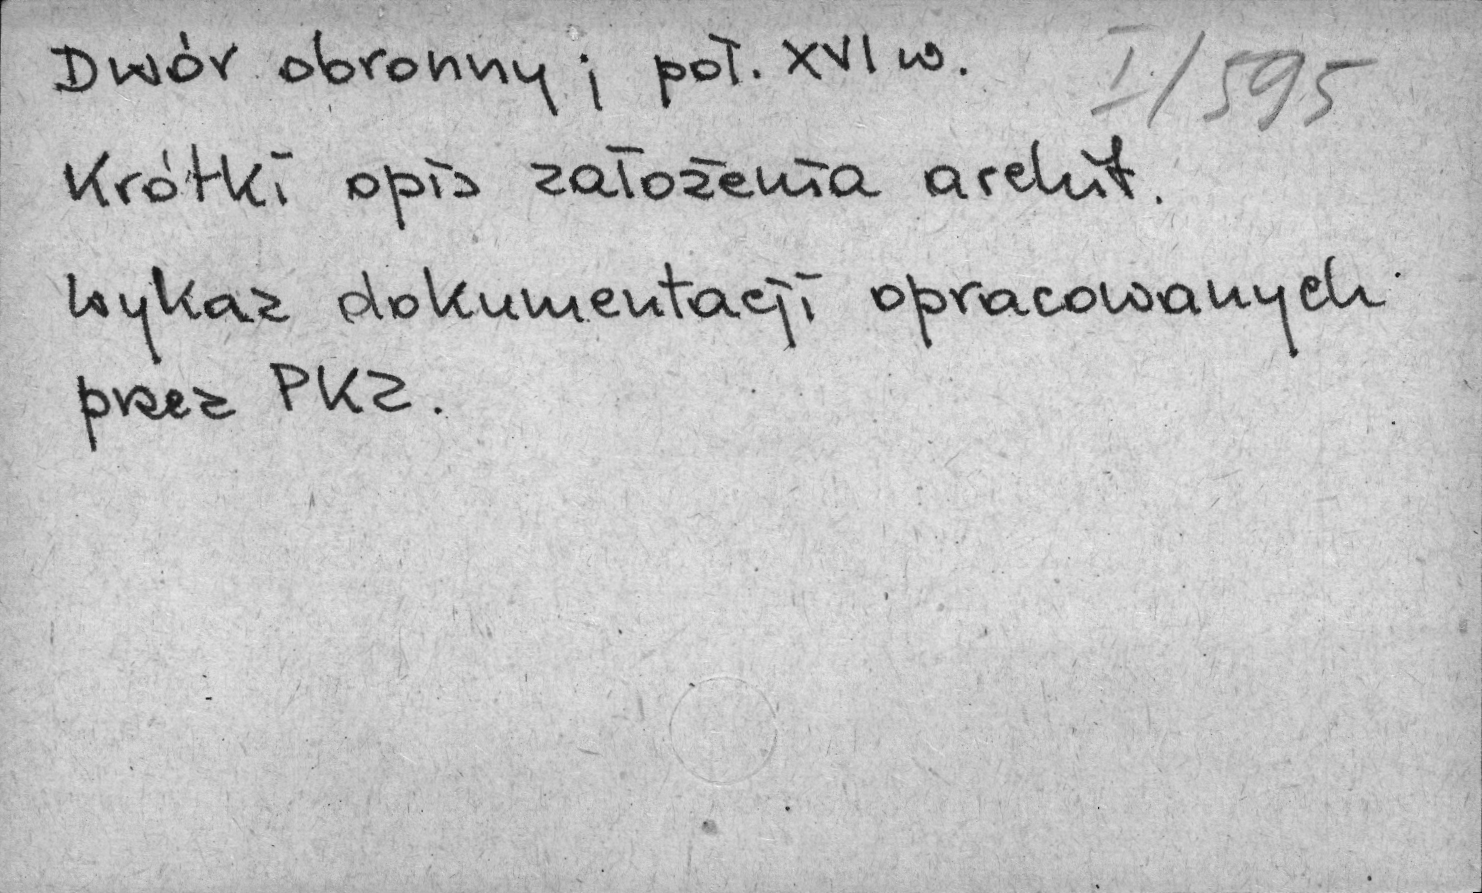 Dwór obronny; poł. XVI w. I/595
Krótki opis założenia archit.
Wykaz dokumentacji opracowanych
przez PKZ.